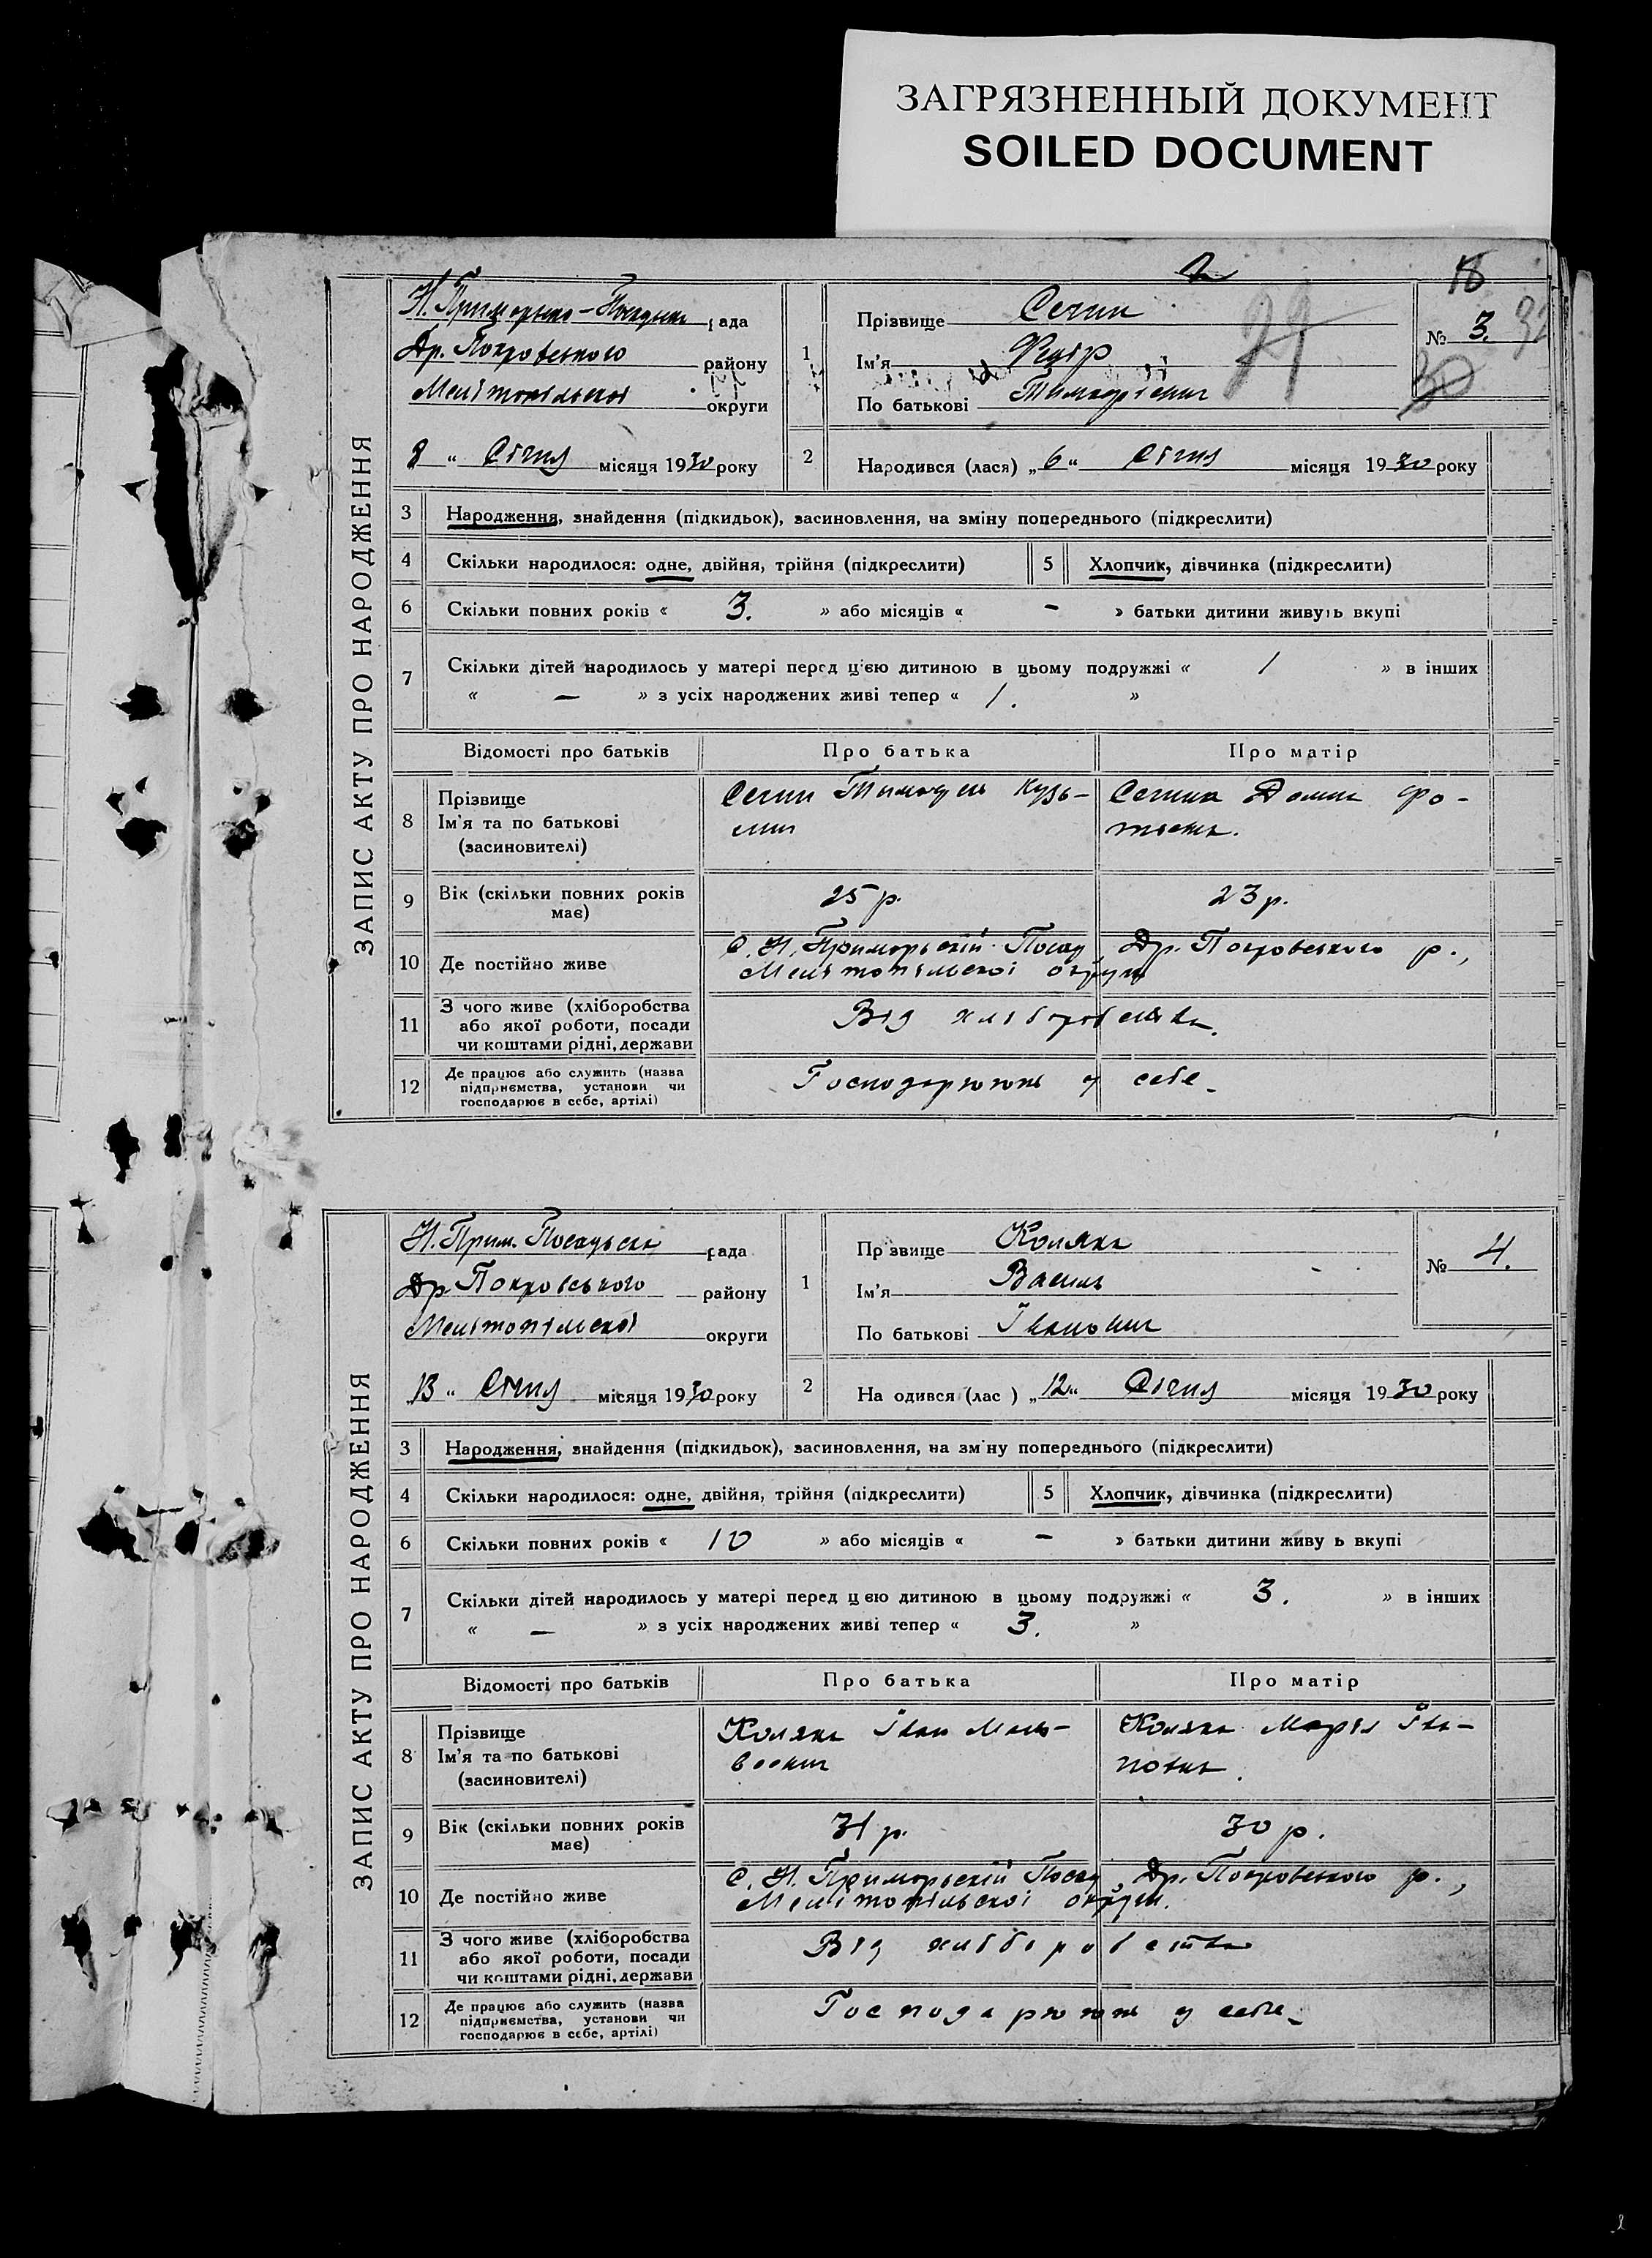 ЗАГРЯЗНЕННЫЙ ДОКУМЕНТ
SOILED DOCUMENT
2
ЗАПИС АКТУ ПРО НАРОДЖЕННЯ
Н. Приморсько-Посадська рада
Др. Покровського району
Мелітопільської округи
8 " Січня місяця 1930 року
1 Прізвище Сечин
Ім'я Федір
По батькові Тимофієвич
№ 3.
30
2 Народився (лася) „6" Січня місяця 1930 року
3 Народження, знайдення (підкидьок), засиновлення, на зміну попереднього (підкреслити)
4 Скільки народилося: одне, двійня, трійня (підкреслити) 5 Хлопчик, дівчинка (підкреслити)
6 Скільки повних років « 3. » або місяців « - » батьки дитини живуть вкупі
7 Скільки дітей народилось у матері перед цією дитиною в цьому подружжі « 1 » в інших
« — » з усіх народжених живі тепер « 1. »
Відомості про батьків Про батька Про матір
8 Прізвище
Ім'я та по батькові
(засиновителі)
Сечин Тимофей Кузь-
мич
Сечина Домна Фо-
тьевна.
9 Вік (скільки повних років
має) 25 р. 23 р.
10 Де постійно живе С. Н. Приморський Посад, Др. Покровського р.,
Мелітопільської округи
11 З чого живе (хліборобства
або якої роботи, посади
чи коштами рідні, держави
Від хліборобства.
12 Де працює або служить (назва
підприємства, установи чи
господарює в себе, артілі)
Господарюють у себе.
ЗАПИС АКТУ ПРО НАРОДЖЕННЯ
Н. Прим. Посадська рада
Др. Покровського району
Мелітопільської округи
„13" Січня місяця 1930 року
1 Прізвище Коляка
Ім'я Василь
По батькові Іванович
№ 4.
2 На одився (лас ) „12" Січня місяця 1930 року
3 Народження, знайдення (підкидьок), засиновлення, на зміну попереднього (підкреслити)
4 Скільки народилося: одне, двійня, трійня (підкреслити) 5 Хлопчик, дівчинка (підкреслити)
6 Скільки повних років « 10 » або місяців « - » батьки дитини живу ь вкупі
7 Скільки дітей народилось у матері перед цією дитиною в цьому подружжі « 3. » в інших
« — » з усіх народжених живі тепер « 3. »
Відомості про батьків Про батька Про матір
8 Прізвище
Ім'я та по батькові
(засиновителі)
Коляка Іван
Коляка Марія Іва-
новна.
9 Вік (скільки повних років
має) 31 р. 30 р.
10 Де постійно живе С. Н. Приморський Посад, Др. Покровського р.,
Мелітопільської округи.
11 З чого живе (хліборобства
або якої роботи, посади
чи коштами рідні, держави
Від хліборобства
12 Де працює або служить (назва
підприємства, установи чи
господарює в себе, артілі)
Господарюють у себе.